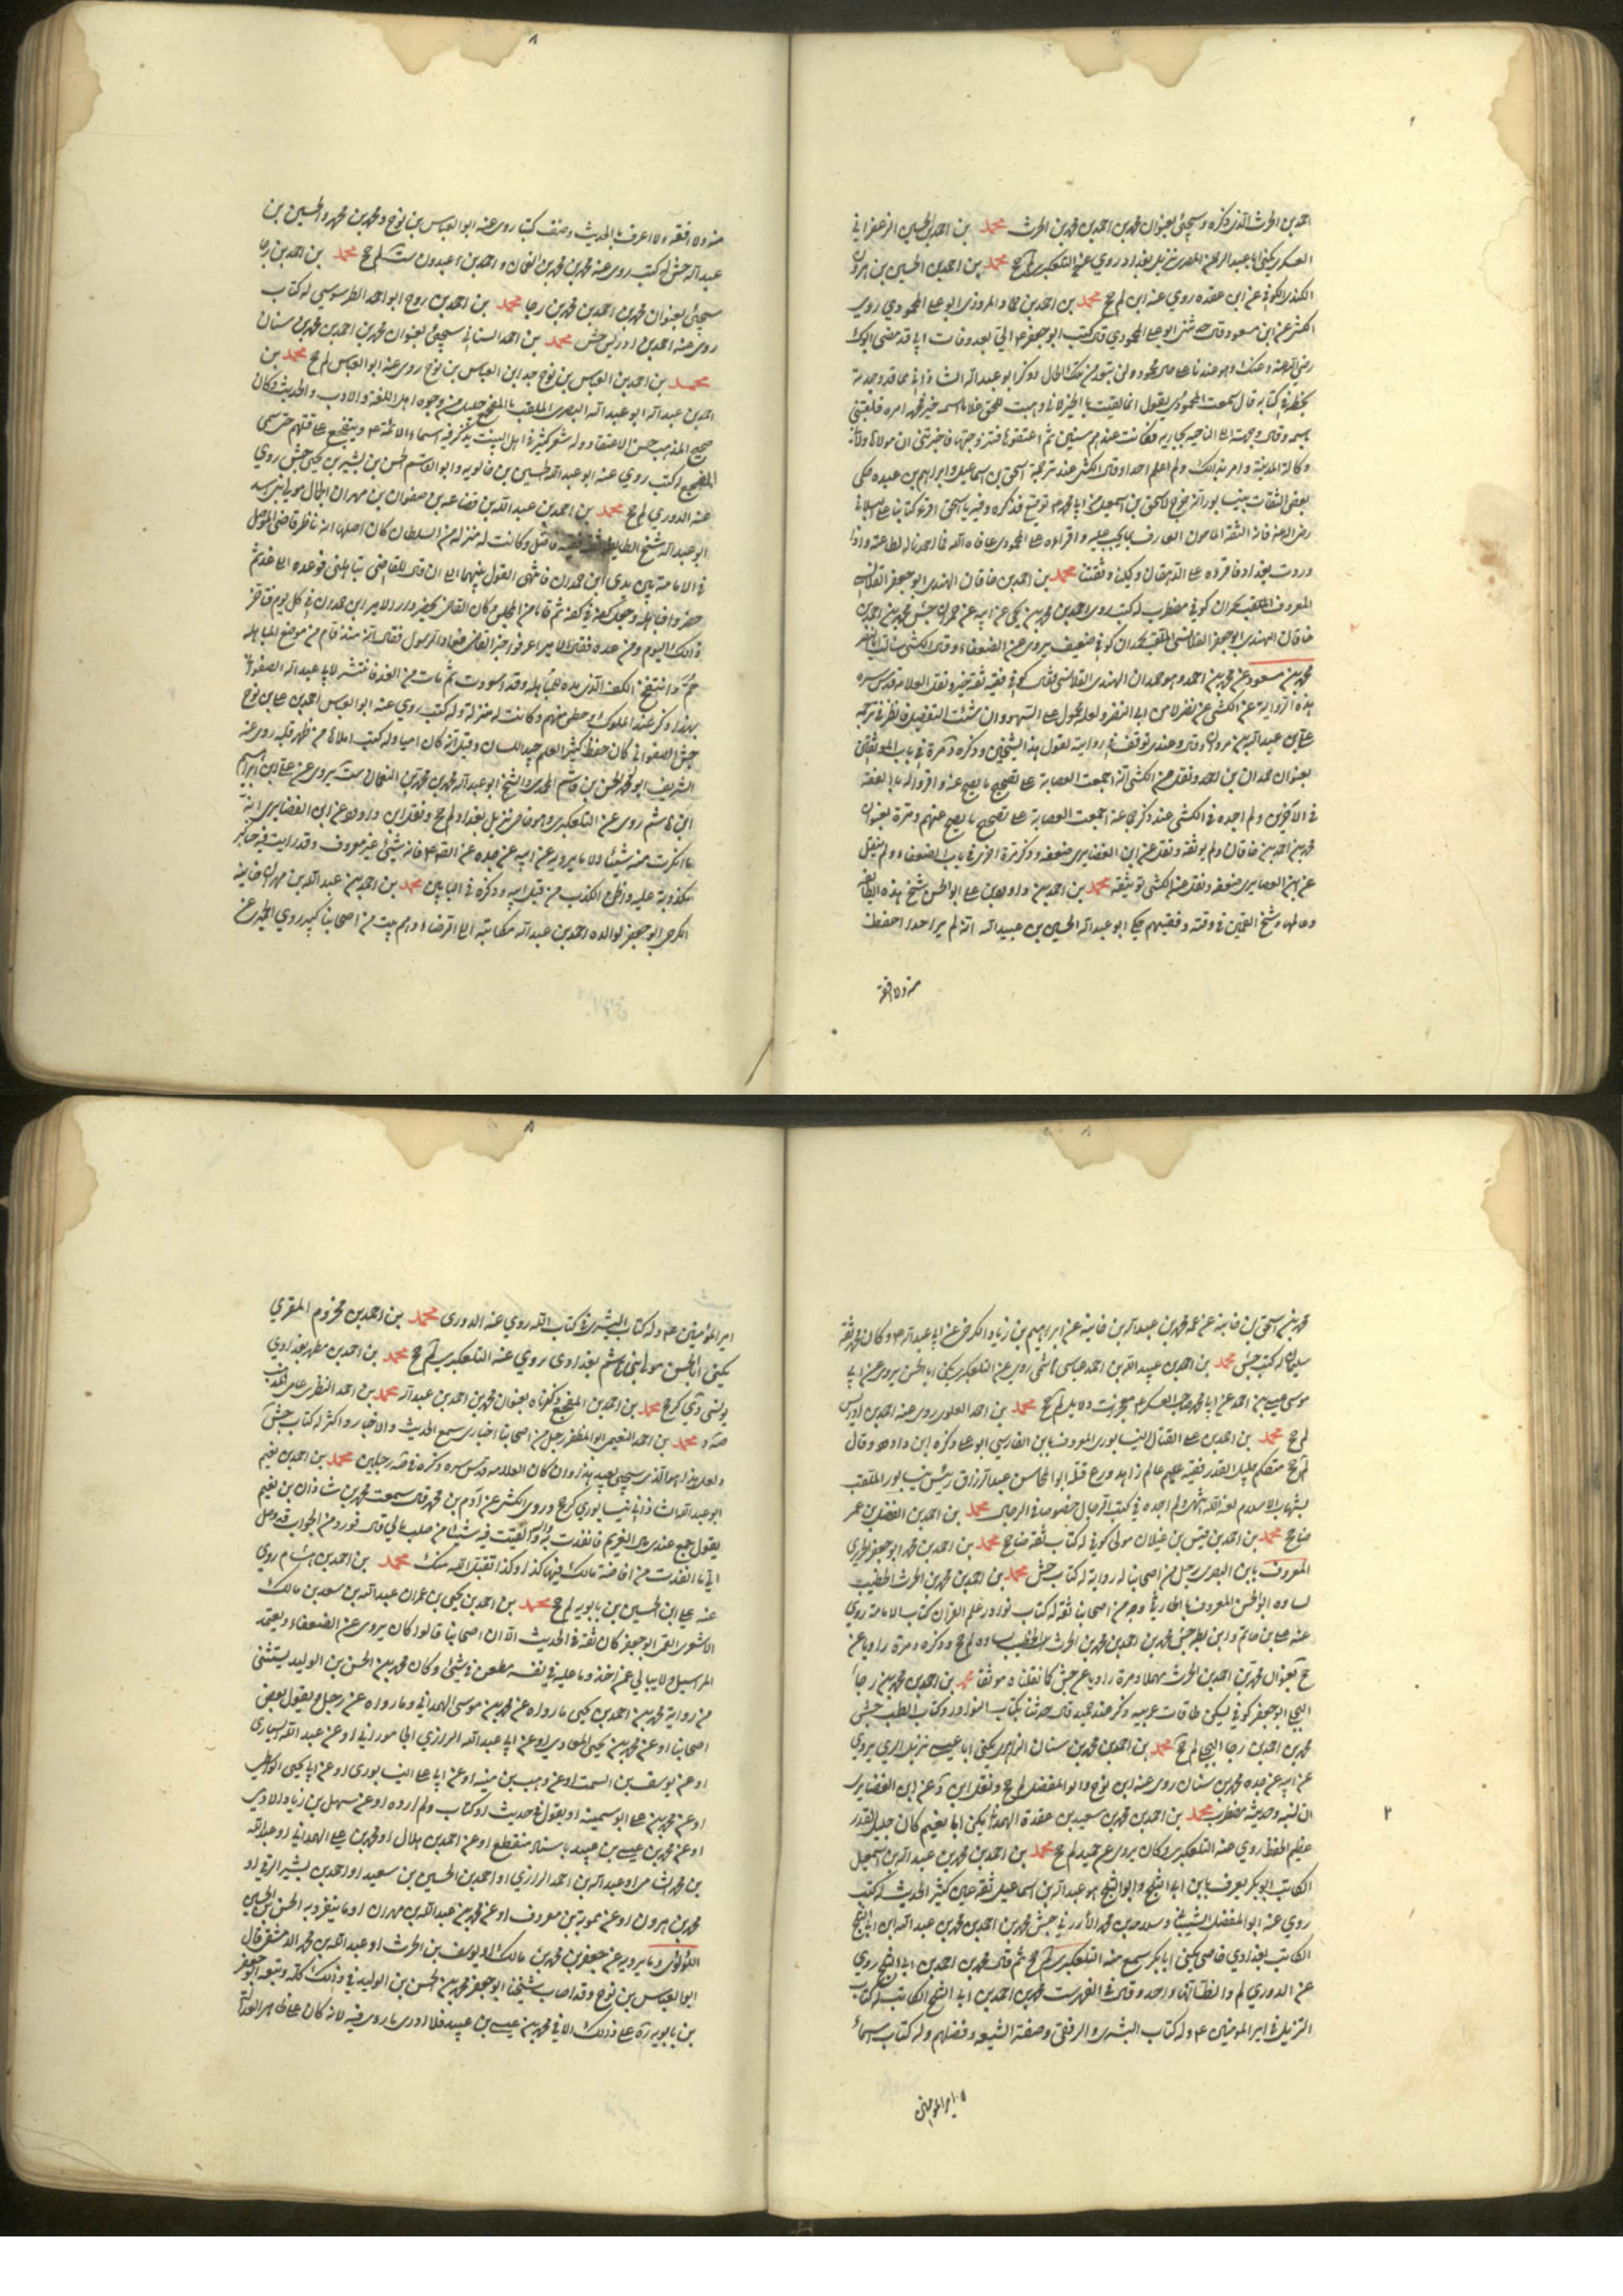 احمد بن الحرث الذي ذكره وسيجئ بعنوان محمد بن احمد بن محمد بن الحرث محمد بن احمد بن الحسين الزعفراني
العسكري يكنى ابا عبد الرحمن المصري نزيل بغداد روي عنه التلعكبري لم جخ محمد بن احمد بن الحسين بن هرون
الكندي الكوفي عن ابن عقده روي عنه ابن لم جخ محمد بن احمد بن حماد المروزي ابو علي المحمودي روي
الكشي عن ابن مسعود قال حدثني ابو علي المحمودي قال كتب ابو جعفر ع الي بعد وفات ابي قد مضى ابوك
رضي الله عنه وعنك وهو عندنا على حال محمودة ولن تبعد من تلك الحال وذكر ابو عبد الله الشاذاني مما قد وجدت
بخطه في كتابه قال سمعت المحمودي يقول
وكالة المدينة وامر بذلك ولم اعلم احدا وقال الكشي عند ترجمة اسحق بن اسماعيل وابراهيم بن عبده حكى
بعض الثقات بنيسابور انه خرج لاسحق بن اسمعيل من ابي محمد ع توقيع فذكره وفيه يا اسحق اقرء كتابنا على البلالي
رضي الله عنه فانه الثقة المامون العارف بما يجب عليه واقراءه على المحمودي عافاه الله فما احمدنا له لطاعته واذا
وردت بغداد فاقرءه على الدهقان وكيلنا وثقتنا محمد بن احمد بن خاقان النهدي ابو جعفر القلانسي
المعروف بحمدان كوفي مضطرب له كتب روي احمد بن محمد بن يحيى عن ابيه عن حمدان جش محمد بن احمد بن
خاقان النهدي ابو جعفر القلانسي الملقب بحمدان كوفي ضعيف يروي عن الضعفاء وقال الكشي سالت ابا النضر
محمد بن مسعود عن محمد بن احمد وهو حمدان النهدي القلانسي فقال كوفي فقيه ثقة خير ونقل العلامة قدس سره
هذه الرواية عن الكشي عن
بعنوان حمدان بن احمد ونقل عن الكشي انه اجمعت العصابة على تصحيح ما يصح عنه واقروا له بالفقه
في الاخرين ولم اجده في الكشي عند ذكر من اجمعت العصابة على تصحيح ما يصح عنهم ومرة بعنوان
محمد بن احمد بن خاقان ولم يوثقه ونقل عن ابن الغضايري ضعفه وذكر مرة اخرى في باب الضعفاء ولم ينقل
عن ابن الغضايري ضعفه ونقل عن الكشي توثيقه محمد بن احمد بن داود بن علي ابو الحسن شيخ هذه الطايفة
وعالمها وشيخ القميين في وقته وفقيههم حكى ابو عبد الله الحسين بن عبيد الله انه لم ير احدا احفظ
منه ولا افقه
منه ولا افقه ولا اعرف بالحديث وصنف كتبا روي عنه ابو العباس بن نوح ومحمد بن محمد والحسين بن
عبيد الله جش له كتب روي عنه محمد بن محمد بن النعمان واحمد بن عبدون ست لم جخ محمد بن احمد بن رجا
سيجئ بعنوان محمد بن احمد بن محمد بن رجا محمد بن احمد بن روح ابو احمد الطرسوسي له كتاب
روي عنه احمد بن ادريس جش محمد بن احمد السناني سيجئ بعنوان محمد بن احمد بن محمد بن سنان
محمد بن احمد بن العباس بن نوح جد ابن العباس بن نوح روي عنه ابو العباس لم جخ محمد بن
احمد بن عبد الله ابو عبد الله البصري الملقب بالمفجع جليل من وجوه اهل اللغة والادب والحديث وكان
صحيح المذهب حسن الاعتقاد وله شعر كثير في اهل البيت يذكر فيه اسماء الائمة ع ويتفجع على قتلهم حتى سمي
المفجع له كتب روي عنه ابو عبد الله الحسين بن خالويه وابو القاسم الحسن بن بشير بن يحيى جش روي
عنه الدوري لم جخ محمد بن احمد بن عبد الله بن قضاعه بن صفوان بن مهران الجمال مولى بني اسد
ابو عبد الله شيخ الطايفة ثقة فقيه فاضل وكانت له منزلة من السلطان كان اصلها انه ناظر قاضي الموصل
في الامامة بين يدي ابن حمدان فانتهى القول بينهما الى ان قال للقاضي تباهلني فوعده الى غد ثم
حضروا فباهله وجعل كفه في كفه ثم قاما من المجلس وكان القاضي يحضر دار الامير ابن حمدان في كل يوم فتاخر
ذلك اليوم ومن غده فقال الامير اعرفوا خبر القاضي فعاد الرسول فقال انه منذ قام من موضع المباهلة
حم وانتفخ الكف الذي مده للمباهلة وقد اسودت ثم مات من الغد فانتشر لابي عبد الله الصفواني
بهذا ذكر عند الملوك وحظي منهم وكانت له منزلة وله كتب روي عنه ابو العباس احمد بن علي بن نوح
جش الصفواني كان حفظة كثير العلم جيد اللسان وقيل انه كان اميا وله كتب املاها من ظهر قلبه روي عنه
الشريف ابو محمد الحسن بن قاسم المحمدي والشيخ ابو عبد الله محمد بن محمد بن النعمان ست يروي عن علي بن ابراهيم
ابن هاشم روي عن التلعكبري وهو خاصي نزيل بغداد لم جخ ونقل ابن داود عن ابن الغضايري انه
ما انكرت منه شيئا الا ما يرويه عن ابيه عن جده عن الصادق ع فانه شئ غير معروف وقد رايت فيه مناكير
مكذوبة عليه واظن الكذب من قبل ابيه وذكره في البابين محمد بن احمد بن عبد الله بن مهران خانبه
الكرخي ابو جعفر لوالده احمد بن عبد الله مكاتبة الى الرضا ع وهم بيت من اصحابنا كبير روي الحميري عن
محمد بن اسحق بن خانبه عن عمه محمد بن عبد الله بن خانبه عن ابراهيم بن زياد الكرخي عن ابي عبد الله ع وكان محمد ثقة
سليما له كتب جش محمد بن احمد بن عبيد الله بن احمد عباسي هاشمي روي عنه التلعكبري يكنى ابا الحسن يروي عن ابي
موسى عيسى بن احمد عن ابي محمد صاحب العسكر ع معجزات ودلايل لم جخ محمد بن احمد العلوي روي عنه احمد بن ادريس
لم جخ محمد بن احمد بن علي الفتال النيسابوري المعروف بابن الفارسي ابو علي ذكره ابن داود وقال
لم جخ متكلم جليل القدر فقيه عالم زاهد ورع قتله ابو المحاسن عبد الرزاق رئيس نيسابور الملقب
بشهاب الاسلام لعنه الله انتهى ولم اجده في كتب الرجال خصوصا في الرجال محمد بن احمد بن الفضل بن عمر
ضا جخ محمد بن احمد بن قيس بن غيلان مولى كوفي له كتاب ثقة ضا جخ محمد بن احمد بن محمد ابو جعفر الحريري
المعروف بابن البصري رجل من اصحابنا له رواية له كتاب جش محمد بن احمد بن محمد بن الحرث الخطيب
بساوه ابو الحسن المعروف بالحارثي وجه من اصحابنا ثقة له كتاب نوادر علم القران كتاب الامامة روي
عنه علي بن حاتم وابن بطة جش محمد بن احمد بن محمد بن الحرث الخطيب بساوه لم جخ وذكره د مرة راويا عن
جخ بعنوان محمد بن احمد بن الحرث مهملا ومرة راويا عن جش كما نقلناه موثقا محمد بن احمد بن محمد بن رجا
البجلي ابو جعفر كوفي يسكن طاقات عرينه وذكر عند حميد قال حدثنا بكتاب النوادر وكتاب الطب جش
محمد بن احمد بن رجا البجلي لم جخ محمد بن احمد بن محمد بن سنان الزاهري يكنى ابا عيسى نزيل الري يروي
عن ابيه عن جده محمد بن سنان روي عنه ابن نوح وابو المفضل لم جخ ونقل ابن د عن ابن الغضايري
ان نسبه وحديثه مضطرب محمد بن احمد بن محمد بن سعيد بن عقدة الهمداني يكنى ابا نعيم كان جليل القدر
عظيم الحفظ روي عنه التلعكبري وكان يروي عن حميد لم جخ محمد بن احمد بن محمد بن عبد الله بن اسمعيل
الكاتب ابو بكر يعرف بابن ابي الثلج وابو الثلج هو عبد الله بن اسماعيل ثقة عين كثير الحديث له كتب
روي عنه ابو المفضل الشيباني وسلامة بن محمد الارزني جش محمد بن احمد بن محمد بن عبد الله ابن ابي الثلج
الكاتب بغدادي خاصي يكنى ابا بكر سمع منه التلعكبري لم جخ ثم قال محمد بن احمد بن ابي الثلج روي
عن الدوري لم والظ انهما واحد وقال في الفهرست محمد بن احمد بن ابي الثلج الكاتب له كتاب
التنزيل في امير المؤمنين ع وله كتاب البشري والزلفى وصفة الشيعة وفضلهم وله كتاب اسماء
امير المؤمنين
امير المؤمنين ع وله كتاب البشري في كتاب الله روي عنه الدوري محمد بن احمد بن مخزوم المقري
يكنى ابا الحسن مولى بني هاشم بغدادي روي عنه التلعكبري لم جخ محمد بن احمد بن مطهر بغدادي
يونسي دي كر جخ محمد بن احمد بن المفجع ذكرناه بعنوان محمد بن احمد بن عبد الله محمد بن احمد النطنزي عامي
محمد بن احمد النعيمي ابو المظفر رجل من اصحابنا اخباري سمع الحديث والاخبار واكثر له كتاب جش
ولعل هذا هو الذي سيجئ بعيد هذا وان كان العلامة قدس سره ذكره في رجلين محمد بن احمد بن نعيم
ابو عبد الله الشاذاني نيسابوري كر جخ وروي الكشي عن آدم بن محمد قال سمعت محمد بن شاذان بن نعيم
يقول جمع عندي مال الغريم فانفذت به اليه والقيت فيه شيئا من صلب مالي قال فورد من الجواب قد وصل
الي ما انفذت من خاصة مالك فيها كذا وكذا تقبل الله منك محمد بن احمد بن هشام روي
عنه علي ابن الحسين بن بابويه لم جخ محمد بن احمد بن يحيى بن عمران عبد الله بن سعد بن مالك
الاشعري القمي ابو جعفر كان ثقة في الحديث الا ان اصحابنا قالوا كان يروي عن الضعفاء ويعتمد
المراسيل ولا يبالي عمن اخذ وما عليه في نفسه مطعن في شئ وكان محمد بن الحسن بن الوليد يستثني
من رواية محمد بن احمد بن يحيى ما رواه عن محمد بن موسى الهمداني وما رواه عن رجل او يقول بعض
اصحابنا او عن محمد بن يحيى المعاذي او عن ابي عبد الله الرازي الجاموراني او عن عبد الله السياري
او عن يوسف بن السخت او عن وهب بن منبه او عن ابي علي النيسابوري او عن ابي يحيى الواسطي
او عن محمد بن علي ابو سمينه او يقول في حديث او كتاب ولم اروه او عن سهل بن زياد الادمي
او عن محمد بن عيسى بن عبيد باسناد منقطع او عن احمد بن هلال او محمد بن علي الهمداني او عبد الله
بن محمد الشامي او عبد الله بن احمد الرازي او احمد بن الحسين بن سعيد او احمد بن بشير الرقي او
محمد بن هرون او عن ممويه بن معروف او عن محمد بن عبد الله بن مهران او ما يتفرد به الحسن بن الحسين
اللؤلؤي وما يرويه عن جعفر بن محمد بن مالك او يوسف بن الحرث او عبد الله بن محمد الدمشقي قال
ابو العباس بن نوح وقد اصاب شيخنا ابو جعفر محمد بن الحسن بن الوليد في ذلك كله وتبعه ابو جعفر
بن بابويه ره على ذلك الا في محمد بن عيسى بن عبيد فلا ادري ما رابه فيه لانه كان على ظاهر العدالة